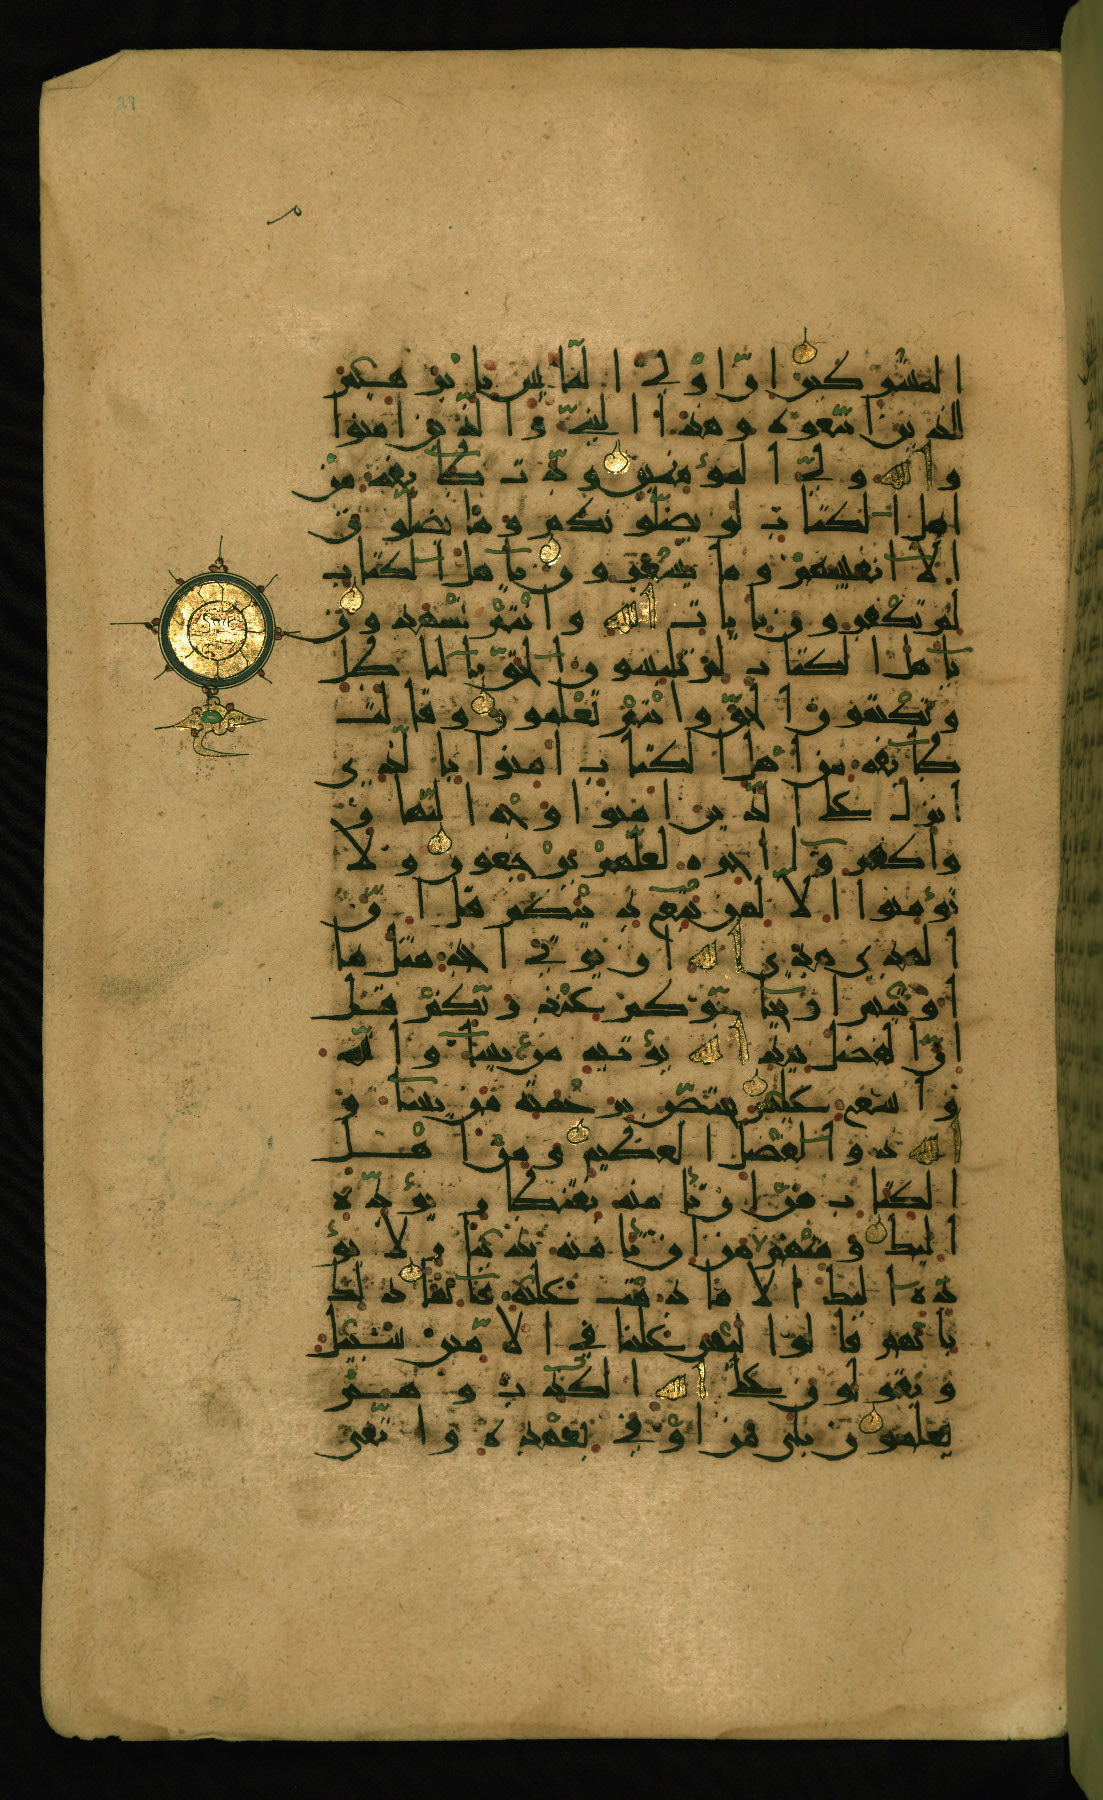 المشركين ان اولى الناس بابرهيم
للذين اتبعوه وهذا النبي والذين امنوا
والله ولي المؤمنين ودت طائفة من
اهل الكتاب لو يضلونكم وما يضلون
الا انفسهم وما يشعرون ياهل الكتاب
لم تكفرون بايات الله وانتم تشهدون
ياهل الكتاب لم تلبسون الحق بالباطل
وتكتمون الحق وانتم تعلمون وقالت
طائفة من اهل الكتاب امنوا بالذي
انزل على الذين امنوا وجه النهار
واكفروا اخره لعلهم يرجعون ولا
تؤمنوا الا لمن تبع دينكم قل ان
الهدى هدى الله ان يؤتى احد مثل ما
اوتيتم او يحاجوكم عند ربكم قل
ان الفضل بيد الله يؤتيه من يشاء والله
واسع عليم يختص برحمته من يشاء و
الله ذو الفضل العظيم ومن اهل
الكتاب من ان تأمنه بقنطار يؤده
اليك ومنهم من ان تأمنه بدينار لا يؤ
ده اليك الا ما دمت عليه قائما ذلك
بانهم قالوا ليس علينا في الامين سبيل
ويقولون على الله الكذب وهم
يعلمون بلى من اوفى بعهده واتقى